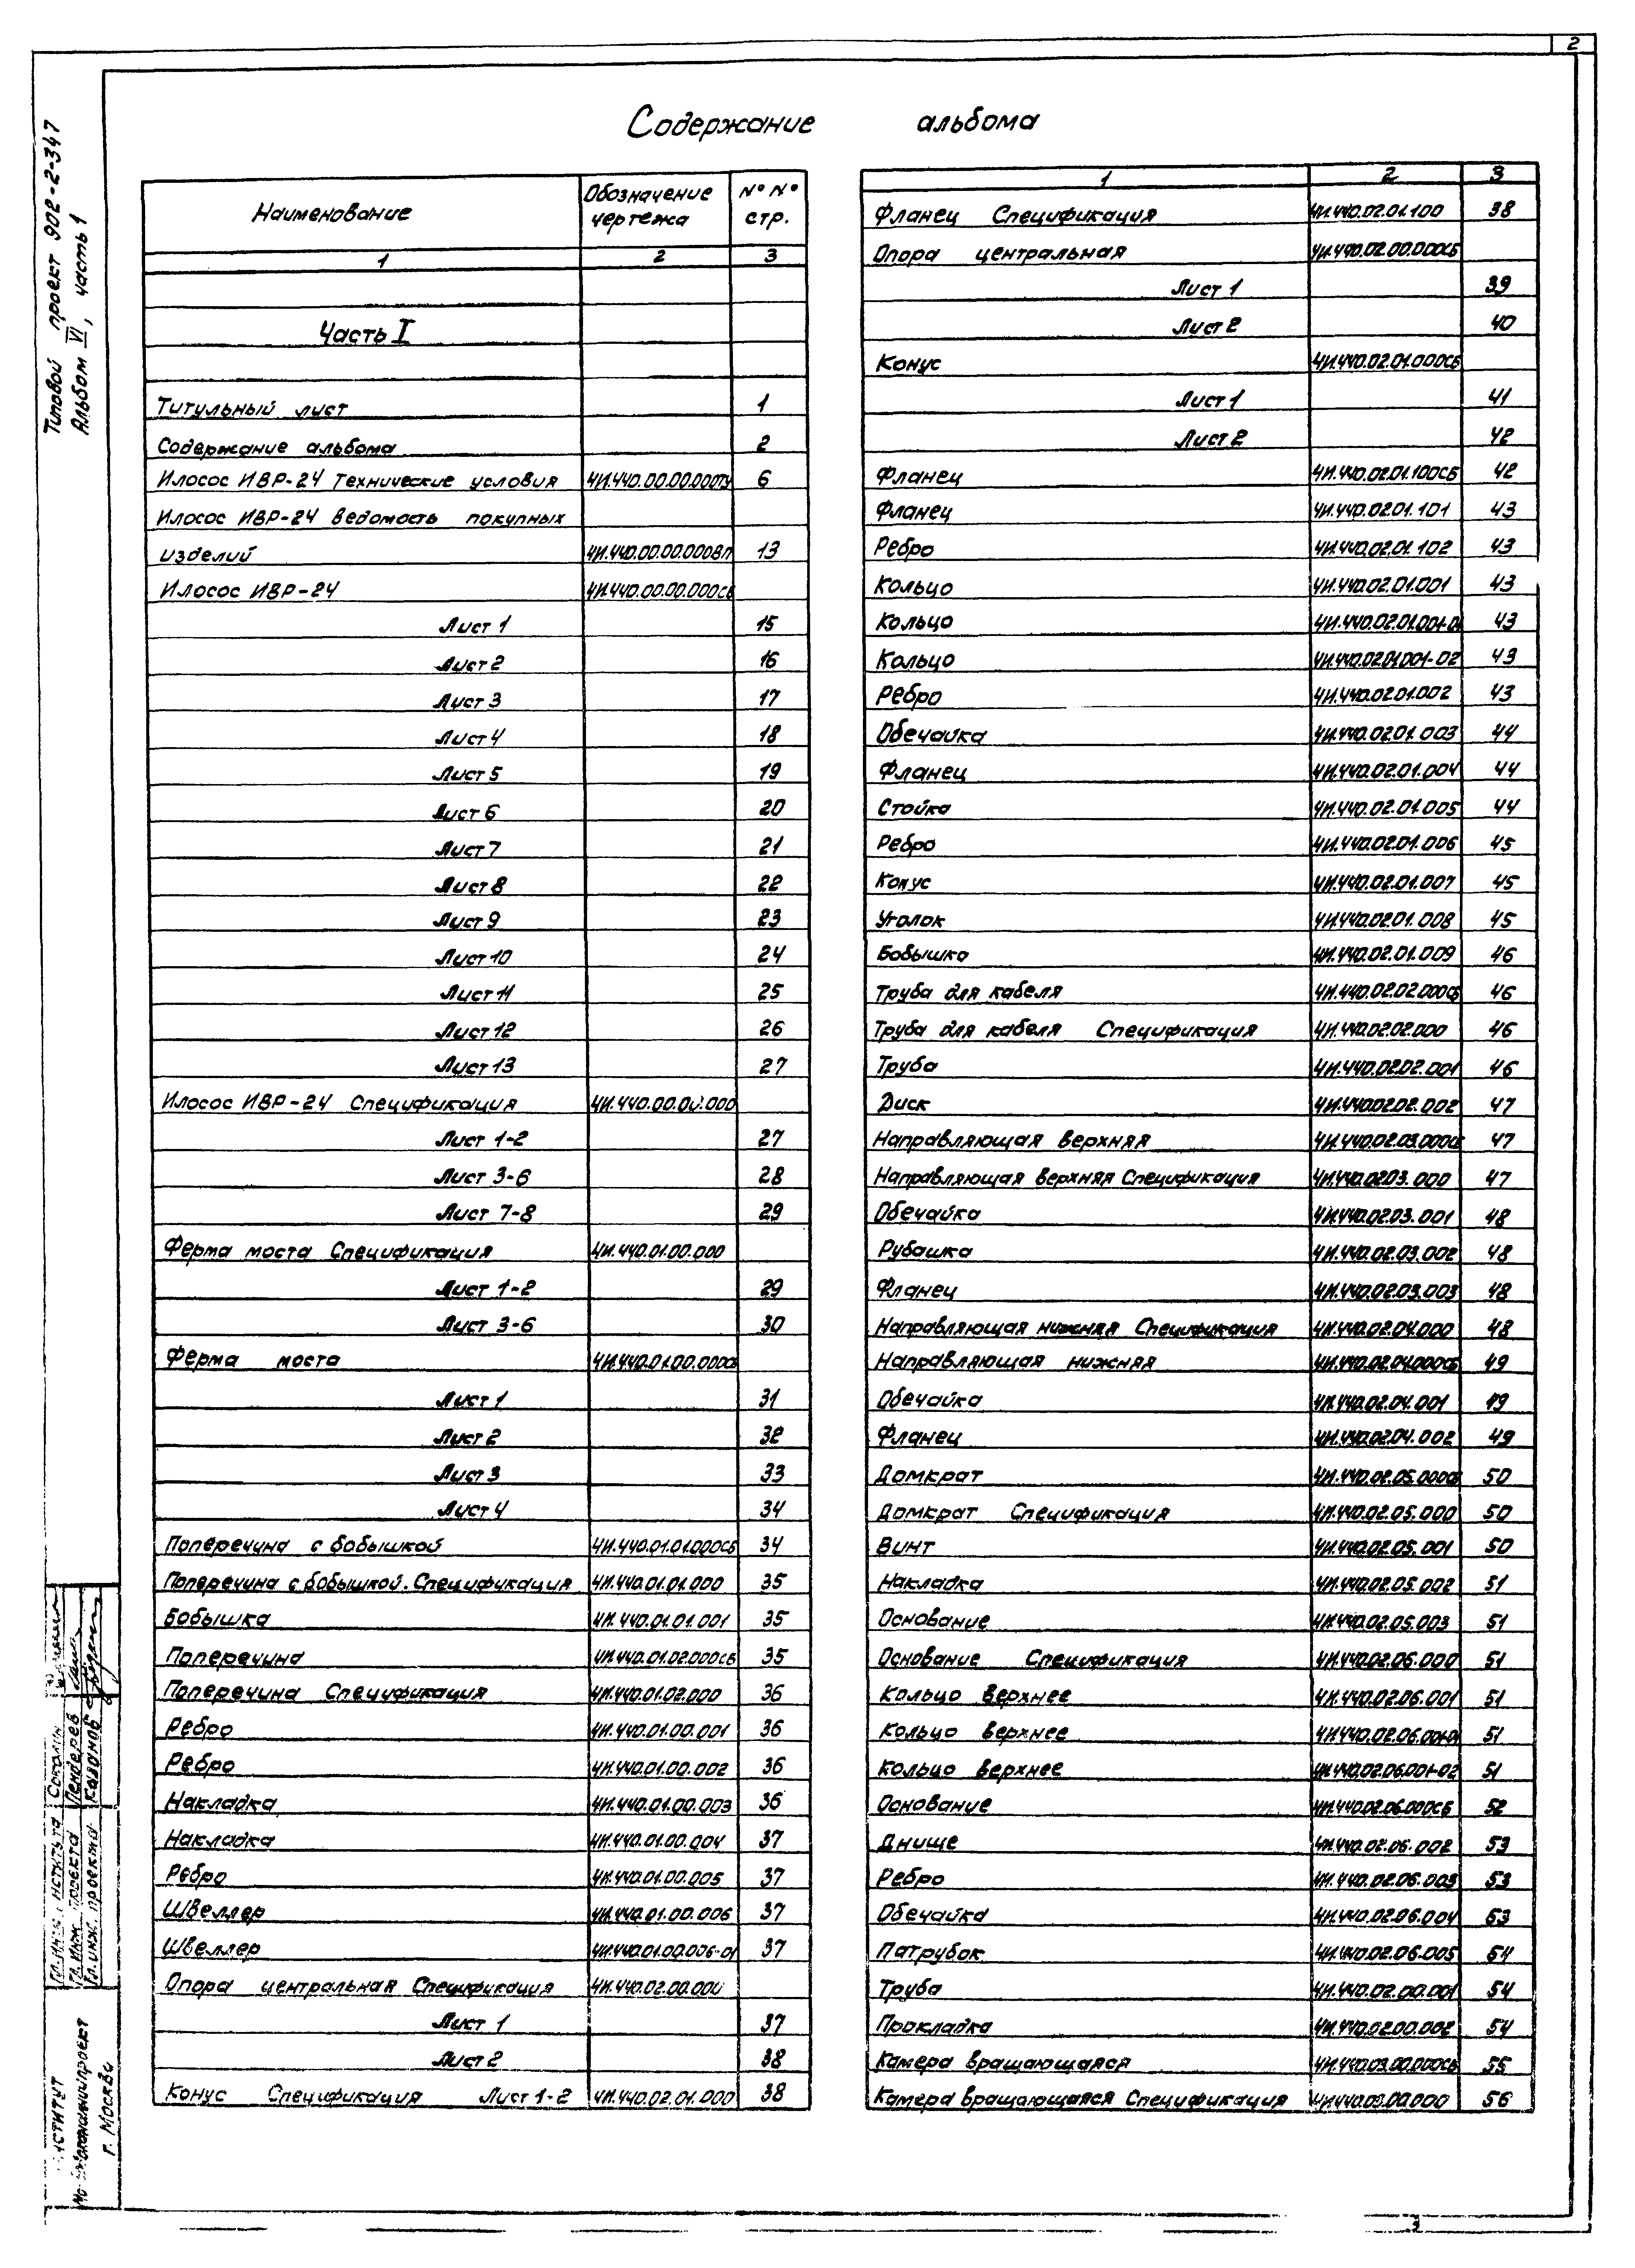 2
Типовой проект 902-2-347
Альбом VI, часть 1
Содержание альбома
Наименование Обозначение чертежа №№ стр.
1 2 3
Часть I
Титульный лист 1
Содержание альбома 2
Илосос ИВР-24 Технические условия 4И.440.00.00.000ТУ 6
Илосос ИВР-24 Ведомость покупных
изделий 4И.440.00.00.000ВП 13
Илосос ИВР-24 4И.440.00.00.000СБ
Лист 1 15
Лист 2 16
Лист 3 17
Лист 4 18
Лист 5 19
Лист 6 20
Лист 7 21
Лист 8 22
Лист 9 23
Лист 10 24
Лист 11 25
Лист 12 26
Лист 13 27
Илосос ИВР-24 Спецификация 4И.440.00.00.000
Лист 1-2 27
Лист 3-6 28
Лист 7-8 29
Ферма моста Спецификация 4И.440.01.00.000
Лист 1-2 29
Лист 3-6 30
Ферма моста 4И.440.01.00.000СБ
Лист 1 31
Лист 2 32
Лист 3 33
Лист 4 34
Поперечина с бобышкой 4И.440.01.01.000СБ 34
Поперечина с бобышкой. Спецификация 4И.440.01.01.000 35
Бобышка 4И.440.01.01.001 35
Поперечина 4И.440.01.02.000СБ 35
Поперечина Спецификация 4И.440.01.02.000 36
Ребро 4И.440.01.00.001 36
Ребро 4И.440.01.00.002 36
Накладка 4И.440.01.00.003 36
Накладка 4И.440.01.00.004 37
Ребро 4И.440.01.00.005 37
Швеллер 4И.440.01.00.006 37
Швеллер 4И.440.01.00.006-01 37
Опора центральная Спецификация 4И.440.02.00.000
Лист 1 37
Лист 2 38
Конус Спецификация Лист 1-2 4И.440.02.01.000 38
1 2 3
Фланец Спецификация 4И.440.02.01.100 38
Опора центральная 4И.440.02.00.000СБ
Лист 1 39
Лист 2 40
Конус 4И.440.02.01.000СБ
Лист 1 41
Лист 2 42
Фланец 4И.440.02.01.100СБ 42
Фланец 4И.440.02.01.101 43
Ребро 4И.440.02.01.102 43
Кольцо 4И.440.02.01.001 43
Кольцо 4И.440.02.01.001-01 43
Кольцо 4И.440.02.01.001-02 43
Ребро 4И.440.02.01.002 43
Обечайка 4И.440.02.01.003 44
Фланец 4И.440.02.01.004 44
Стойка 4И.440.02.01.005 44
Ребро 4И.440.02.01.006 45
Конус 4И.440.02.01.007 45
Уголок 4И.440.02.01.008 45
Бобышка 4И.440.02.01.009 46
Труба для кабеля 4И.440.02.02.000СБ 46
Труба для кабеля Спецификация 4И.440.02.02.000 46
Труба 4И.440.02.02.001 46
Диск 4И.440.02.02.002 47
Направляющая верхняя 4И.440.02.03.000СБ 47
Направляющая верхняя Спецификация 4И.440.02.03.000 47
Обечайка 4И.440.02.03.001 48
Рубашка 4И.440.02.03.002 48
Фланец 4И.440.02.03.003 48
Направляющая нижняя Спецификация 4И.440.02.04.000 48
Направляющая нижняя 4И.440.02.04.000СБ 49
Обечайка 4И.440.02.04.001 49
Фланец 4И.440.02.04.002 49
Домкрат 4И.440.02.05.000СБ 50
Домкрат Спецификация 4И.440.02.05.000 50
Винт 4И.440.02.05.001 50
Накладка 4И.440.02.05.002 51
Основание 4И.440.02.05.003 51
Основание Спецификация 4И.440.02.06.000 51
Кольцо верхнее 4И.440.02.06.001 51
Кольцо верхнее 4И.440.02.06.001-01 51
Кольцо верхнее 4И.440.02.06.001-02 51
Основание 4И.440.02.06.000СБ 52
Днище 4И.440.02.06.002 53
Ребро 4И.440.02.06.003 53
Обечайка 4И.440.02.06.004 53
Патрубок 4И.440.02.06.005 54
Труба 4И.440.02.00.001 54
Прокладка 4И.440.02.00.002 54
Камера вращающаяся 4И.440.03.00.000СБ 55
Камера вращающаяся Спецификация 4И.440.03.00.000 56
Соколин
Гл. инж. проекта Пендерев
Гл. инж. проекта Казанов
г. Москва